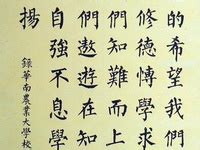 的希望我們
修德愽學求
們知難而上
們遨遊在知
自強不息學
揚
錄華南農業大學校